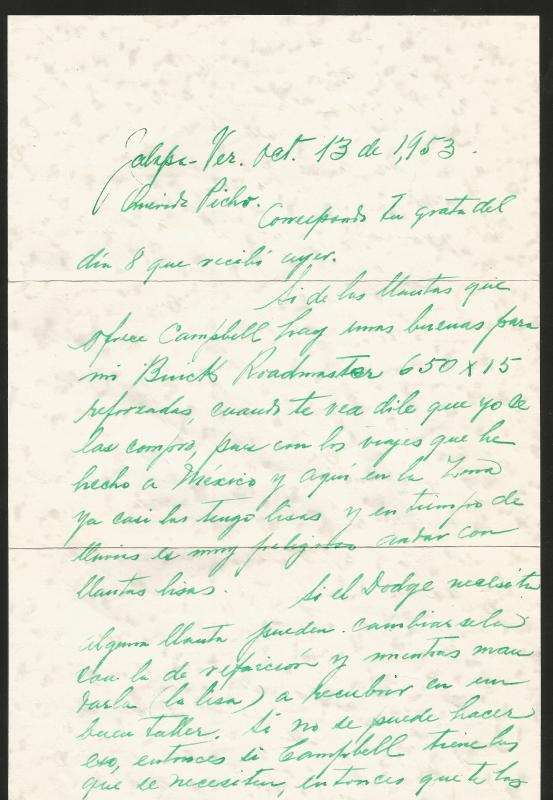 Jalapa-Ver. Oct. 13 de 1,953.
Querido Picho.
Correspondo tu grata del
día 8 que recibí ayer.
Si de las llantas que
ofrece Campbell hay unas buenas para
mi Buick Roadmaster 650 x 15
reforzadas, cuando te vea dile que yo se
las compro, pues con los viajes que he
hecho a México y aquí en la Zona
ya casi las tengo lisas y en tiempo de
lluvias es muy peligroso andar con
llantas lisas.
Si el Dodge necesita
alguna llanta pueden cambiarsela
con la de refacción y mientras man
darla (la lisa) a recubrir en un
buen taller. Si no se puede hacer
eso, entonces si Campbell tiene las
que se necesiten, entonces que te las